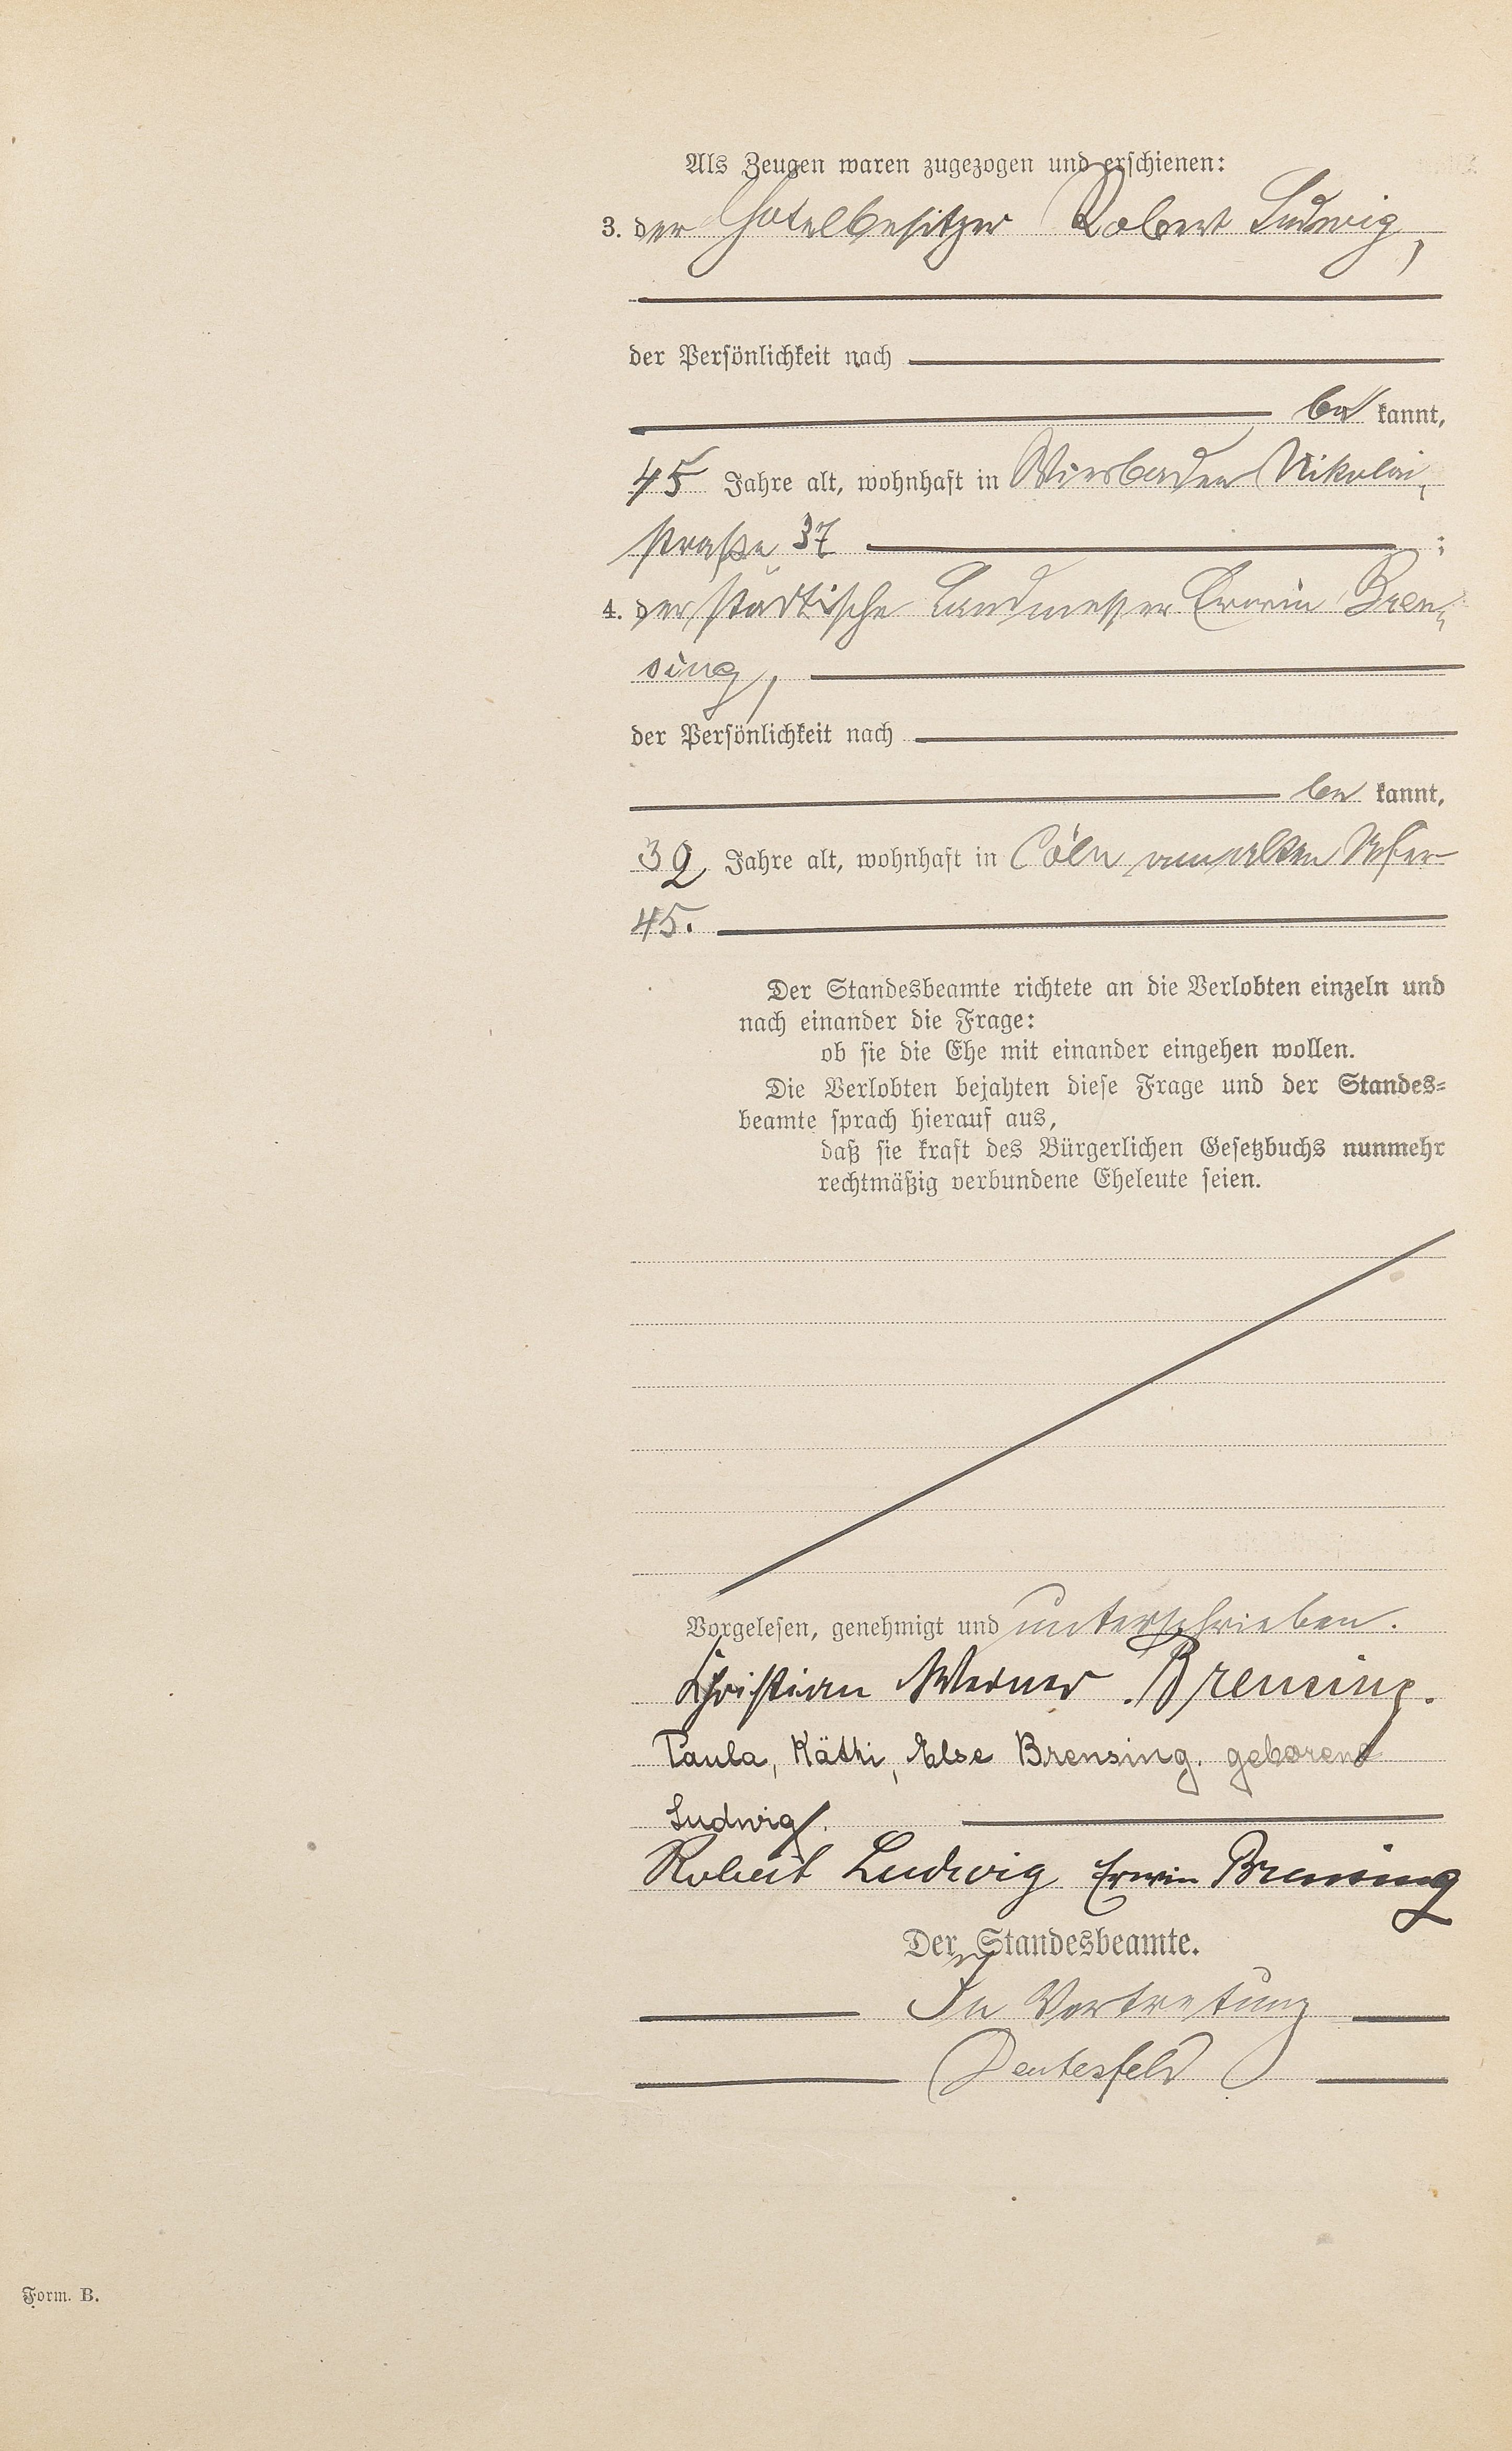 Als Zeugen waren zugezogen und erschienen:
3. der Hotelbesitzer Robert Ludwig,
der Persönlichkeit nach
be kannt,
45 Jahre alt, wohnhaft in Wiesbaden Nikolai-
straße 37 ;
4. der städtische Landmesser Erwin Bren-
sing,
der Persönlichkeit nach
be kannt,
32 Jahre alt, wohnhaft in Cöln am alten Ufer
45.
Der Standesbeamte richtete an die Verlobten einzeln und
nach einander die Frage:
ob sie die Ehe mit einander eingehen wollen.
Die Verlobten bejahten diese Frage und der Standes-
beamte sprach hierauf aus,
daß sie kraft des Bürgerlichen Gesetzbuchs nunmehr
rechtmäßig verbundene Eheleute seien.
Vorgelesen, genehmigt und unterschrieben.
Christian Werner Brensing.
Paula, Käthi, Else Brensing. geborene
Ludwig.
Robert Ludwig Erwin Brensing
Der Standesbeamte.
In Vertretung
Form. B.